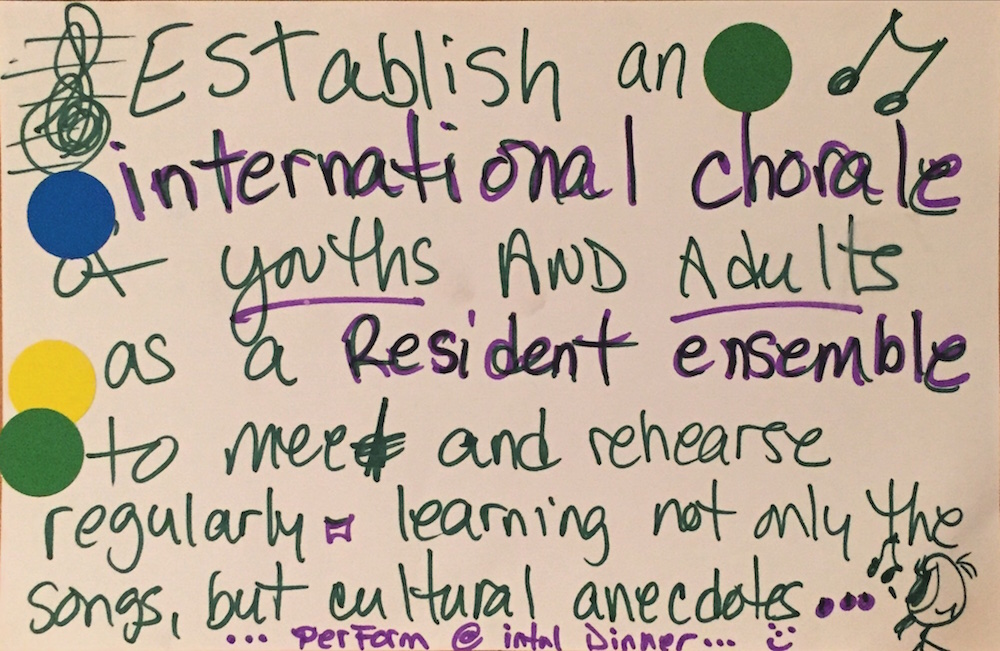 Establish an
international chorale
of youths AND Adults
as a Resident ensemble
to meet and rehearse
regularly - learning not only the
songs, but cultural anecdotes...
... perform @ intnl Dinner... :)